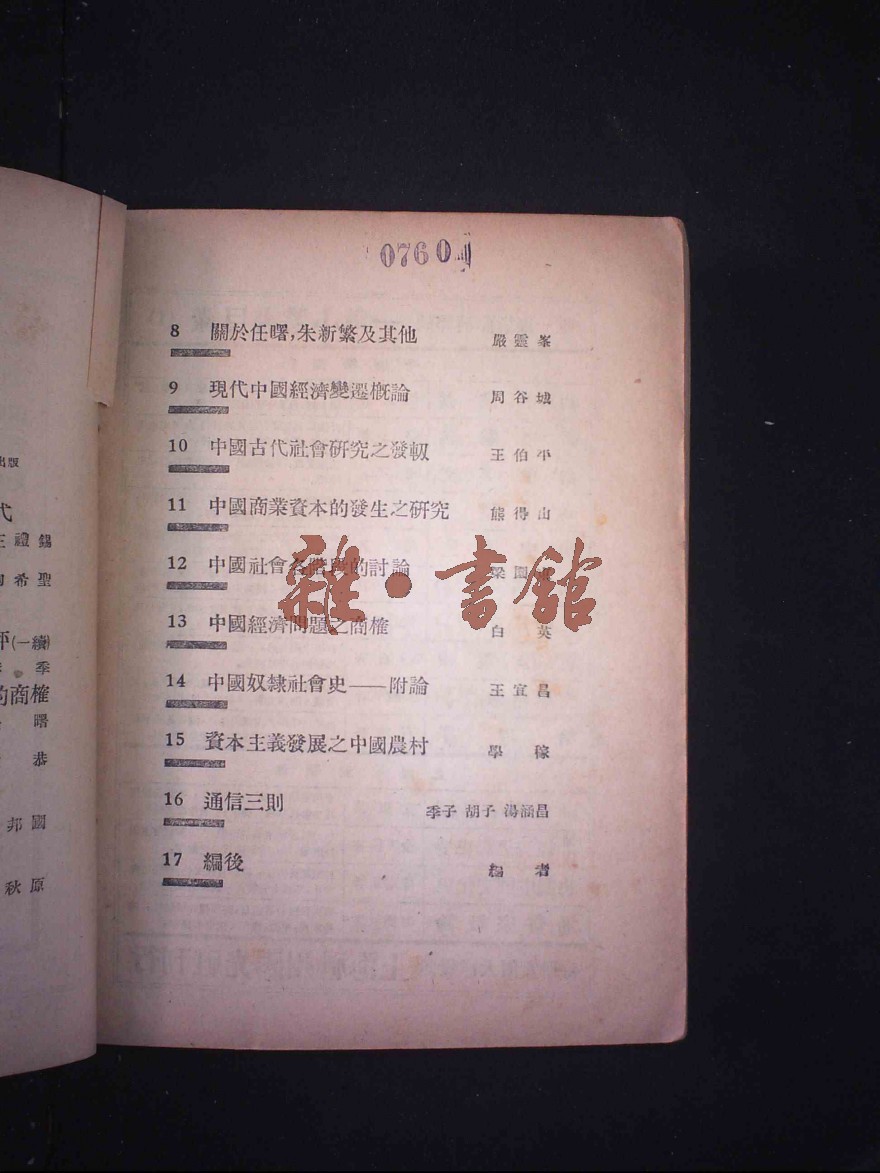 0760
8 關於任曙,朱新繁及其他 嚴靈峯
9 現代中國經濟變遷概論 周谷城
10 中國古代社會研究之發軔 王伯平
11 中國商業資本的發生之研究 熊得山
12 中國社會各階段的討論 梁園東
13 中國經濟問題之商榷 白英
14 中國奴隸社會史——附論 王宜昌
15 資本主義發展之中國農村 學稼
16 通信三則 季子 胡子 湯涵昌
17 編後 編者
雜·書館
出版
代
王禮錫
陶希聖
評(一續)
季
的商榷
曙
恭
邦國
秋原